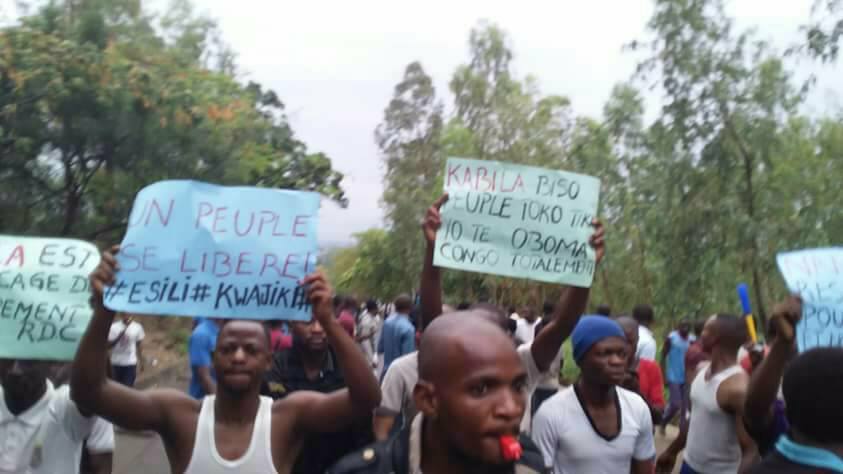 A EST
CAGE D
PEMENT
RDC
UN PEUPLE
SE LIBERE!
#ESILI#KWAJIKA
KABILA BISO
PEUPLE TOKO TIK
YO TE OBOMA
CONGO TOTALEMENT
RES
POU